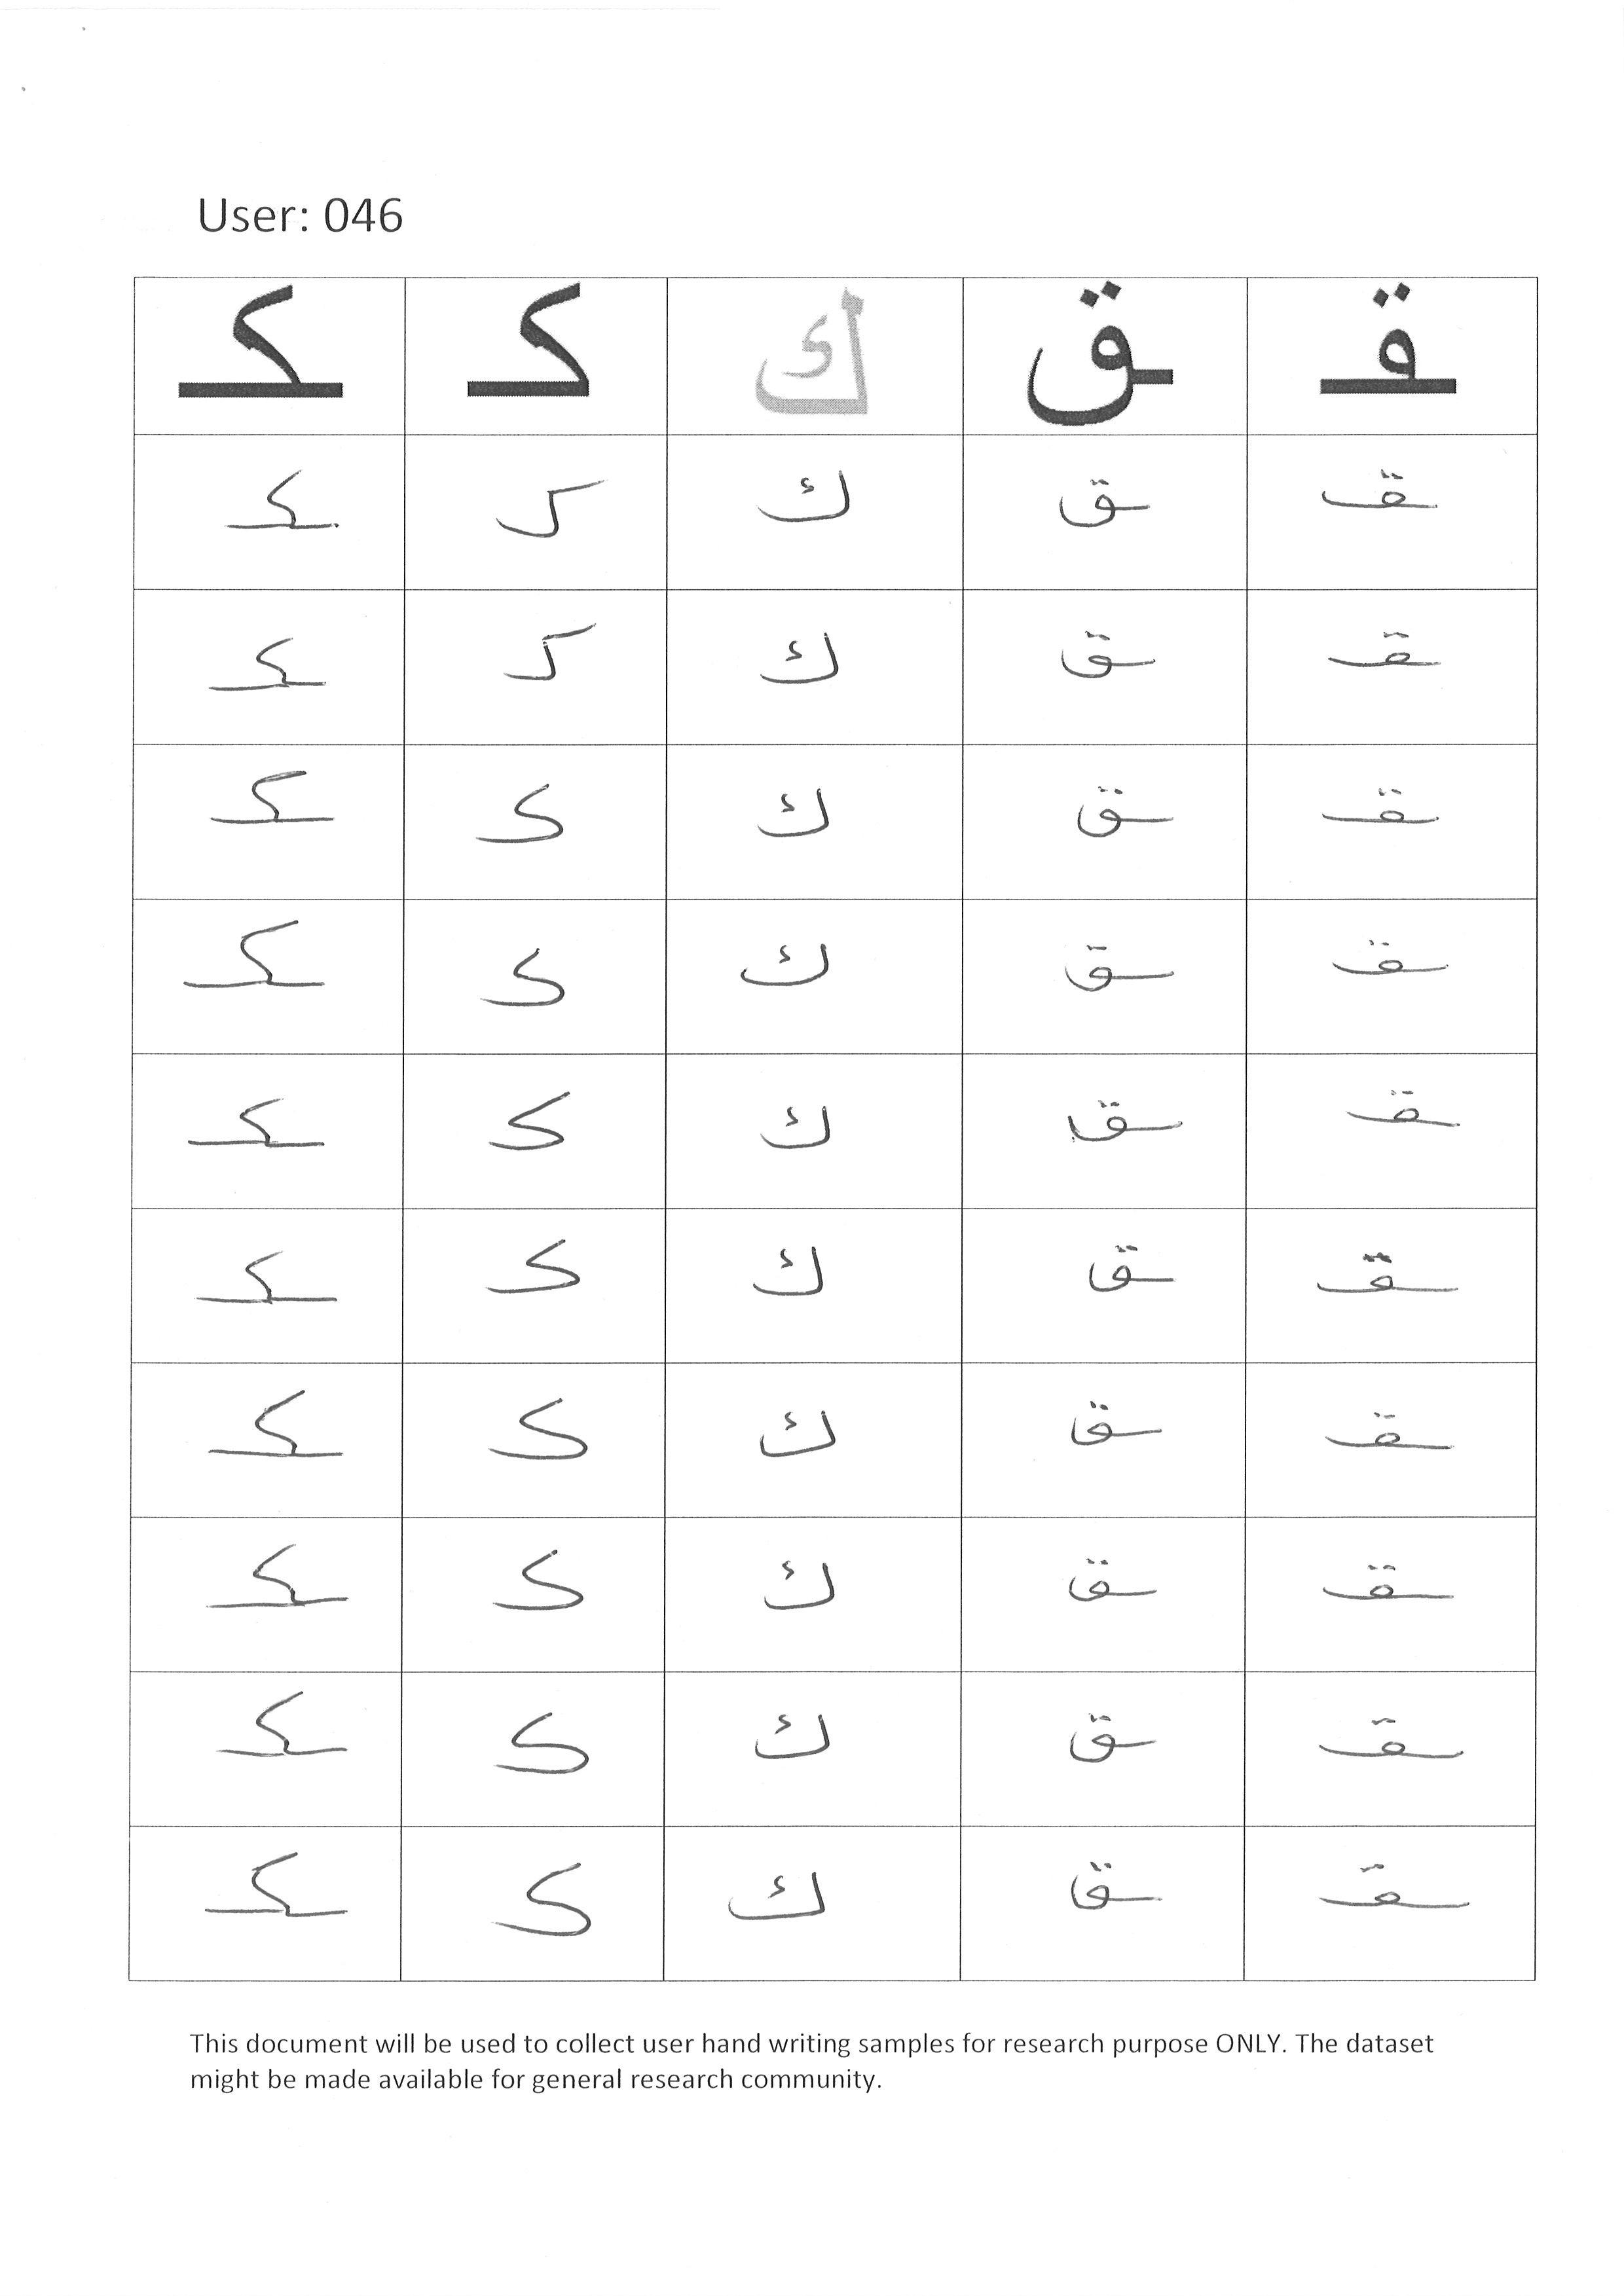 User: 046
ـقـ ـق ك كـ ـكـ
ـقـ ـق ك كـ ـكـ
ـقـ ـق ك كـ ـكـ
ـقـ ـق ك كـ ـكـ
ـقـ ـق ك كـ ـكـ
ـقـ ـق ك كـ ـكـ
ـقـ ـق ك كـ ـكـ
ـقـ ـق ك كـ ـكـ
ـقـ ـق ك كـ ـكـ
ـقـ ـق ك كـ ـكـ
ـقـ ـق ك كـ ـكـ
This document will be used to collect user hand writing samples for research purpose ONLY. The dataset
might be made available for general research community.